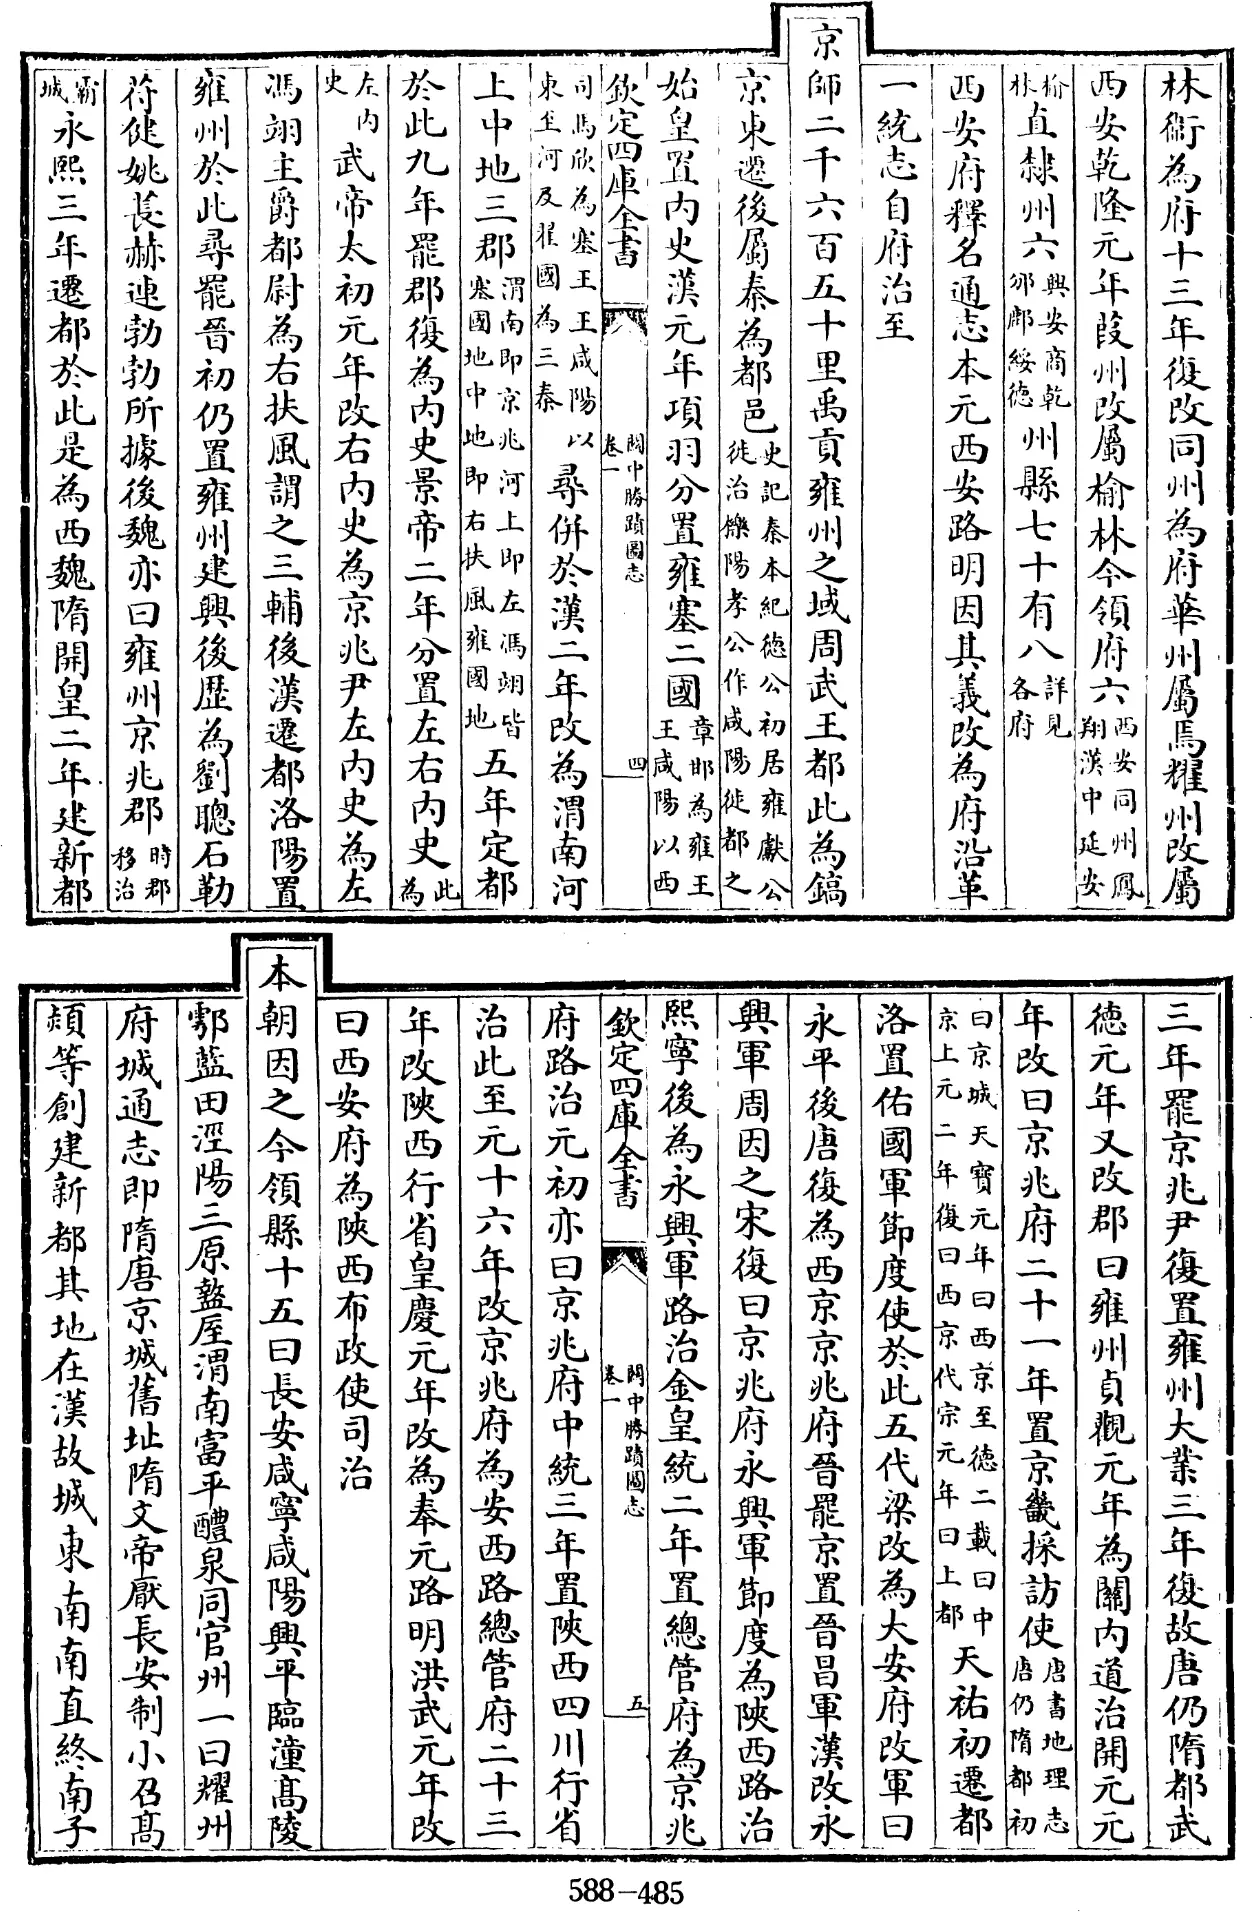 林衛為府十三年復改同州為府華州屬焉耀州改屬
西安乾隆元年葭州改屬榆林今領府六西安同州鳳翔漢中延安
榆林直隸州六興安商乾邠鄜綏德州縣七十有八詳見各府
西安府釋名通志本元西安路明因其義改為府沿革
一統志自府治至
京師二千六百五十里禹貢雍州之域周武王都此為鎬
京東遷後屬秦為都邑史記秦本紀德公初居雍獻公徙治櫟陽孝公作咸陽徙都之
始皇置內史漢元年項羽分置雍塞二國章邯為雍王王咸陽以西
欽定四庫全書
關中勝蹟圖志
卷一
四
司馬欣為塞王王咸陽以東至河及翟國為三秦尋併於漢二年改為渭南河
上中地三郡渭南即京兆河上即左馮翊皆塞國地中地即右扶風雍國地五年定都
於此九年罷郡復為內史景帝二年分置左右內史此為
左內史武帝太初元年改右內史為京兆尹左內史為左
馮翊主爵都尉為右扶風謂之三輔後漢遷都洛陽置
雍州於此尋罷晉初仍置雍州建興後歷為劉聰石勒
苻健姚萇赫連勃勃所據後魏亦曰雍州京兆郡時郡移治
霸城永熙三年遷都於此是為西魏隋開皇二年建新都
三年罷京兆尹復置雍州大業三年復故唐仍隋都武
德元年又改郡曰雍州貞觀元年為關內道治開元元
年改曰京兆府二十一年置京畿採訪使唐書地理志唐仍隋都初
曰京城天寶元年曰西京至德二載曰中京上元二年復曰西京代宗元年曰上都天祐初遷都
洛置佑國軍節度使於此五代梁改為大安府改軍曰
永平後唐復為西京京兆府晉罷京置晉昌軍漢改永
興軍周因之宋復曰京兆府永興軍節度為陝西路治
熙寧後為永興軍路治金皇統二年置總管府為京兆
欽定四庫全書
關中勝蹟圖志
卷一
五
府路治元初亦曰京兆府中統三年置陝西四川行省
治此至元十六年改京兆府為安西路總管府二十三
年改陝西行省皇慶元年改為奉元路明洪武元年改
曰西安府為陝西布政使司治
本朝因之今領縣十五曰長安咸寧咸陽興平臨潼高陵
鄠藍田涇陽三原盩厔渭南富平醴泉同官州一曰耀州
府城通志即隋唐京城舊址隋文帝厭長安制小召高
熲等創建新都其地在漢故城東南南直終南子
588-485